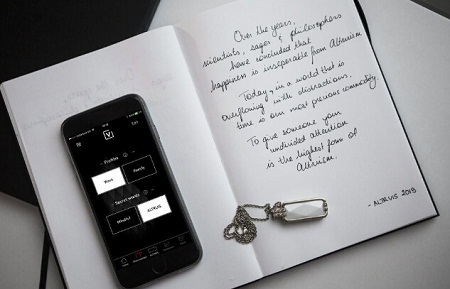 Over the years,
scientists, sages & philosophers
have concluded that
happiness is inseparable from Altruism
Today, in a world that is
overflowing with distractions,
time is our most precious commodity
To give someone your
undivided attention
is the highest form of
Altruism.
- ALTRUIS 2018
Edit
Profiles
Work
Family
Secret words
Mindful
ALTRUIS